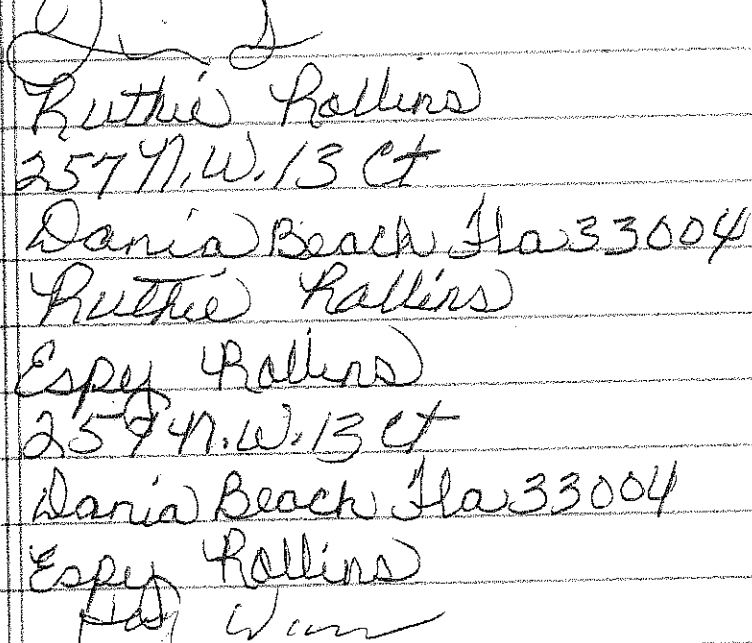 Ruthie Rollins
257 N.W. 13 Ct
Dania Beach Fla 33004
Ruthie Rollins
Espy Rollins
257 N.W. 13 Ct
Dania Beach Fla 33004
Espy Rollins